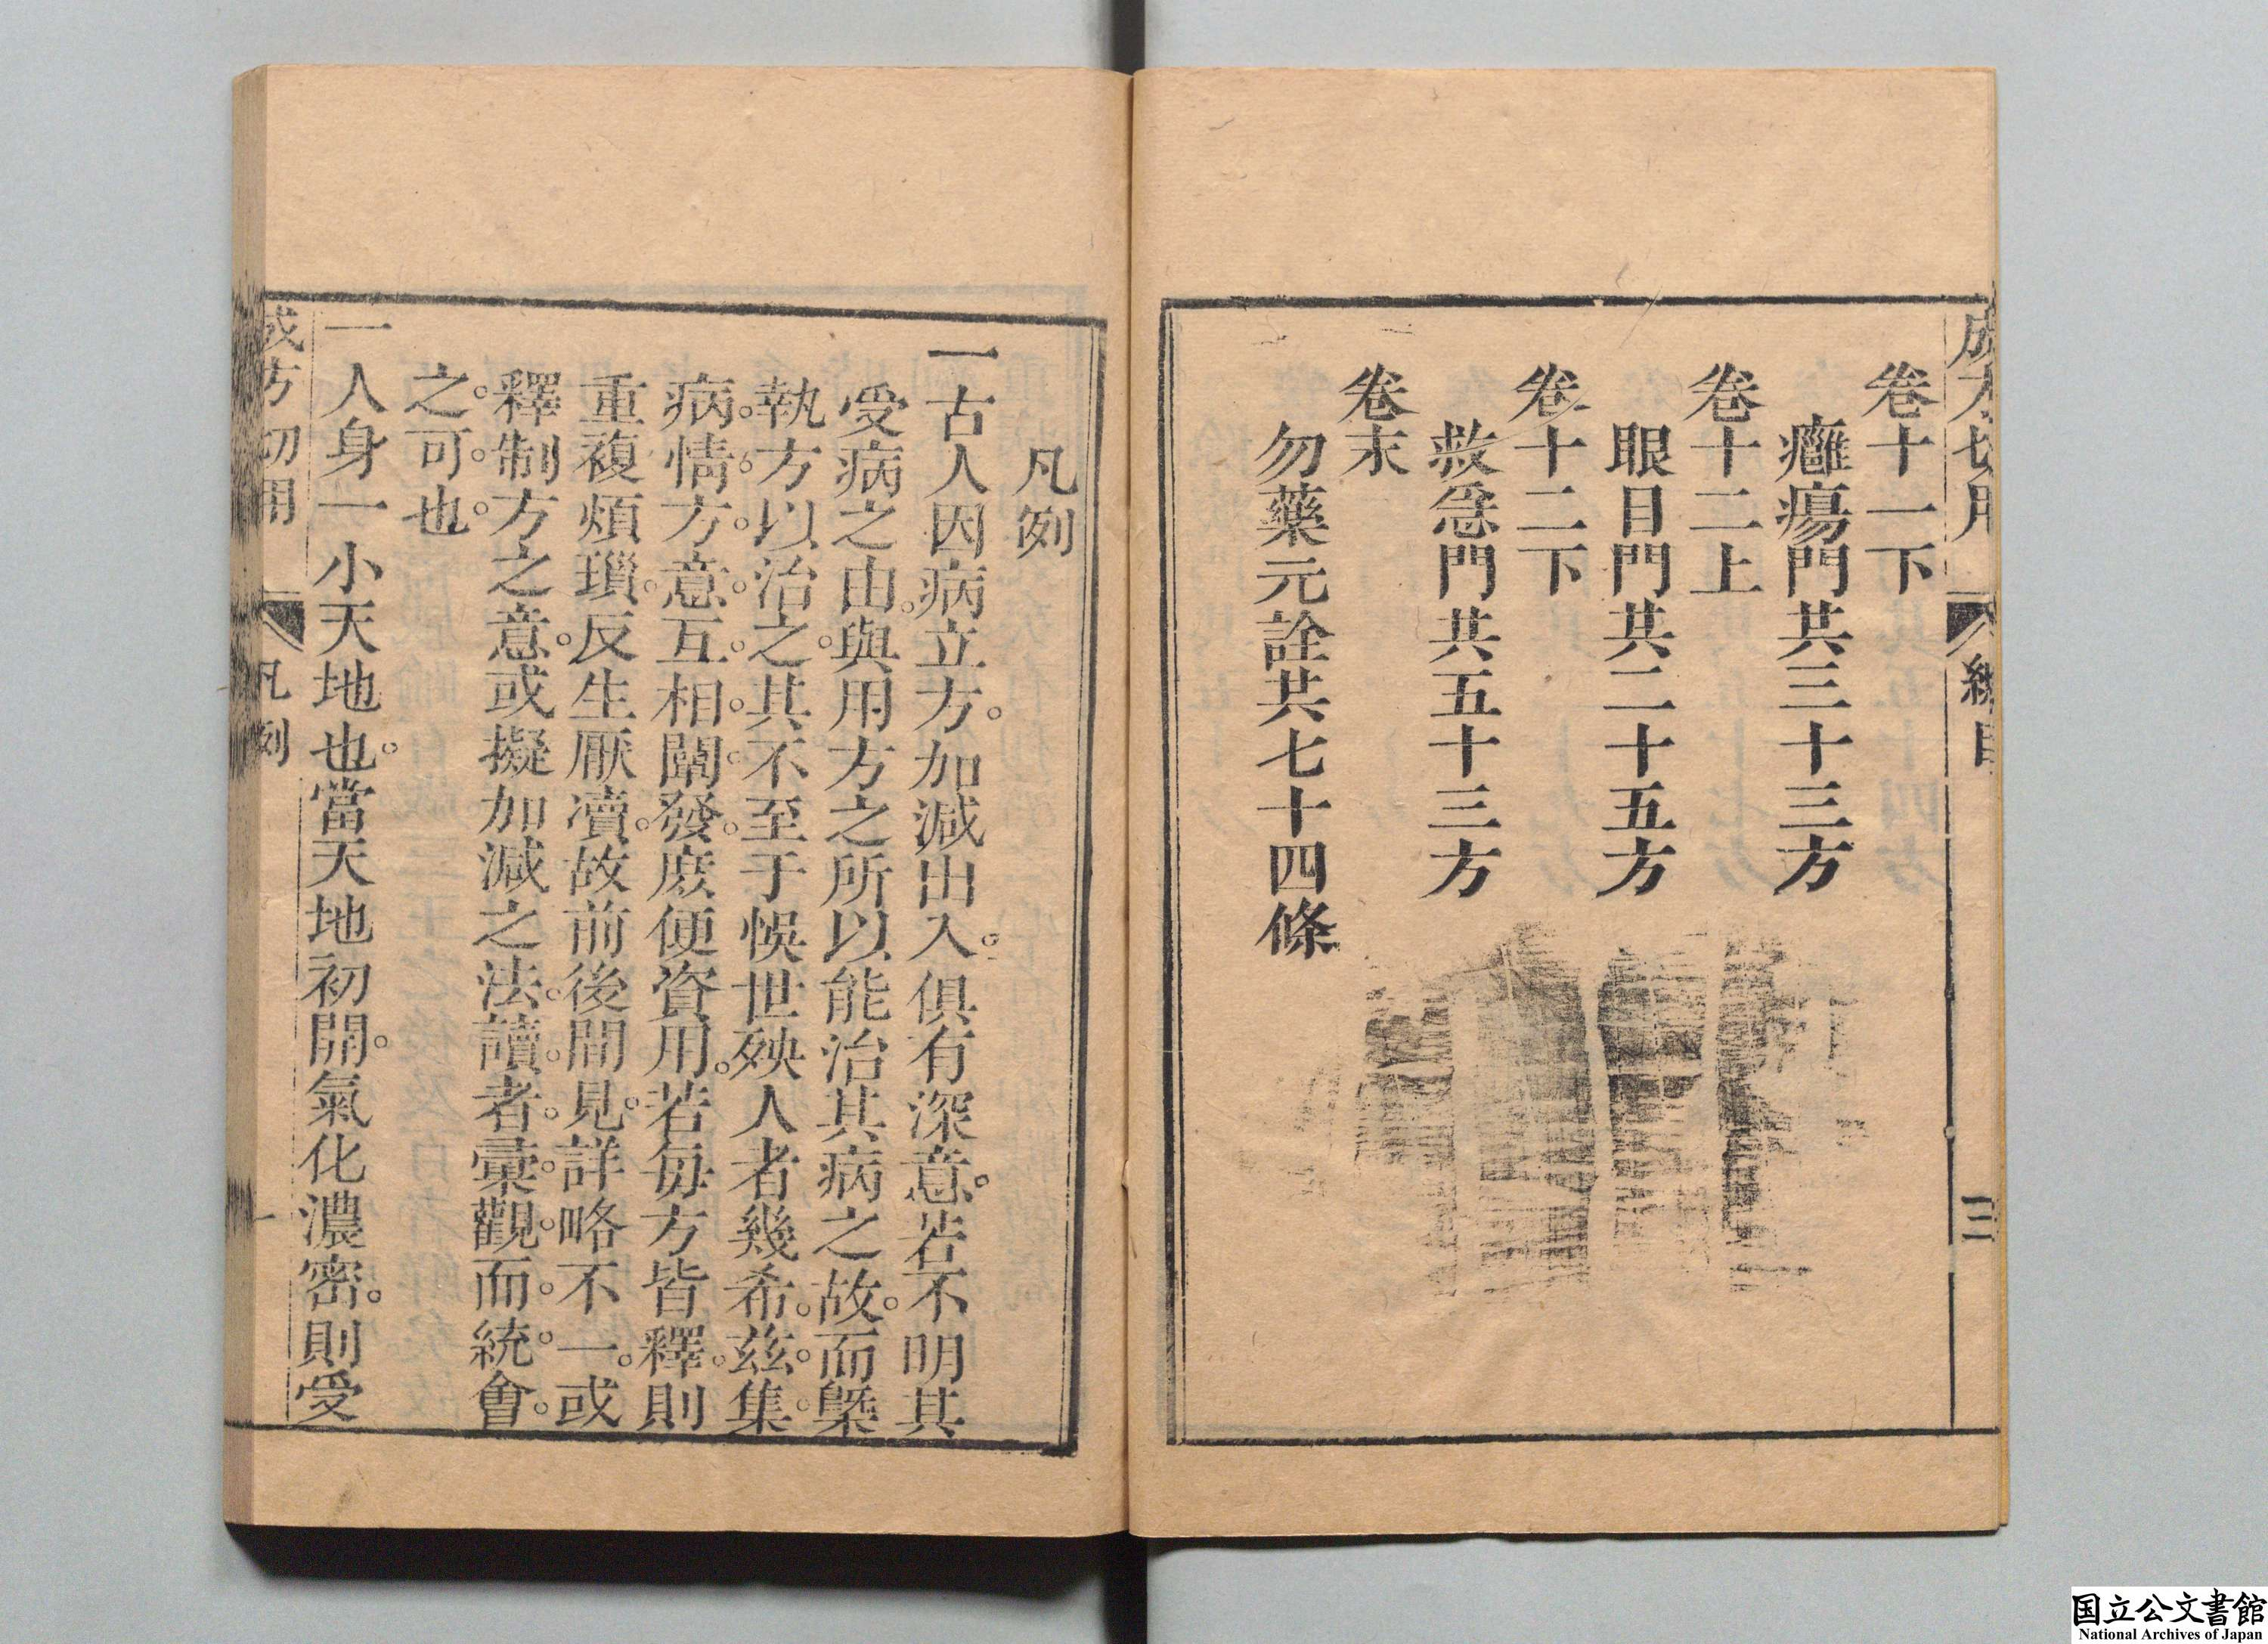 成方切用
總目
三
卷十一下
癰瘍門共三十三方
卷十二上
眼目門共二十五方
卷十二下
救急門共五十三方
卷末
勿藥元詮共七十四條
凡例
一古人因病立方。加減出入。俱有深意。若不明其
受病之由。與用方之所以能治其病之故。而槩
執方以治之。其不至于悞世殃人者幾希。茲。集。
病。情。方。意。互。相。闡。發。庶便資用。若每方皆釋。則
重複煩瑣。反生厭凟。故前後間見。詳略不一。或
釋制方之意。或擬加減之法。讀。者。彙。觀。而。統。會。
之。可。也。
一人身一小天地也。當天地初開。氣化濃密。則受
成方切用
凡例
一
国立公文書館
National Archives of Japan